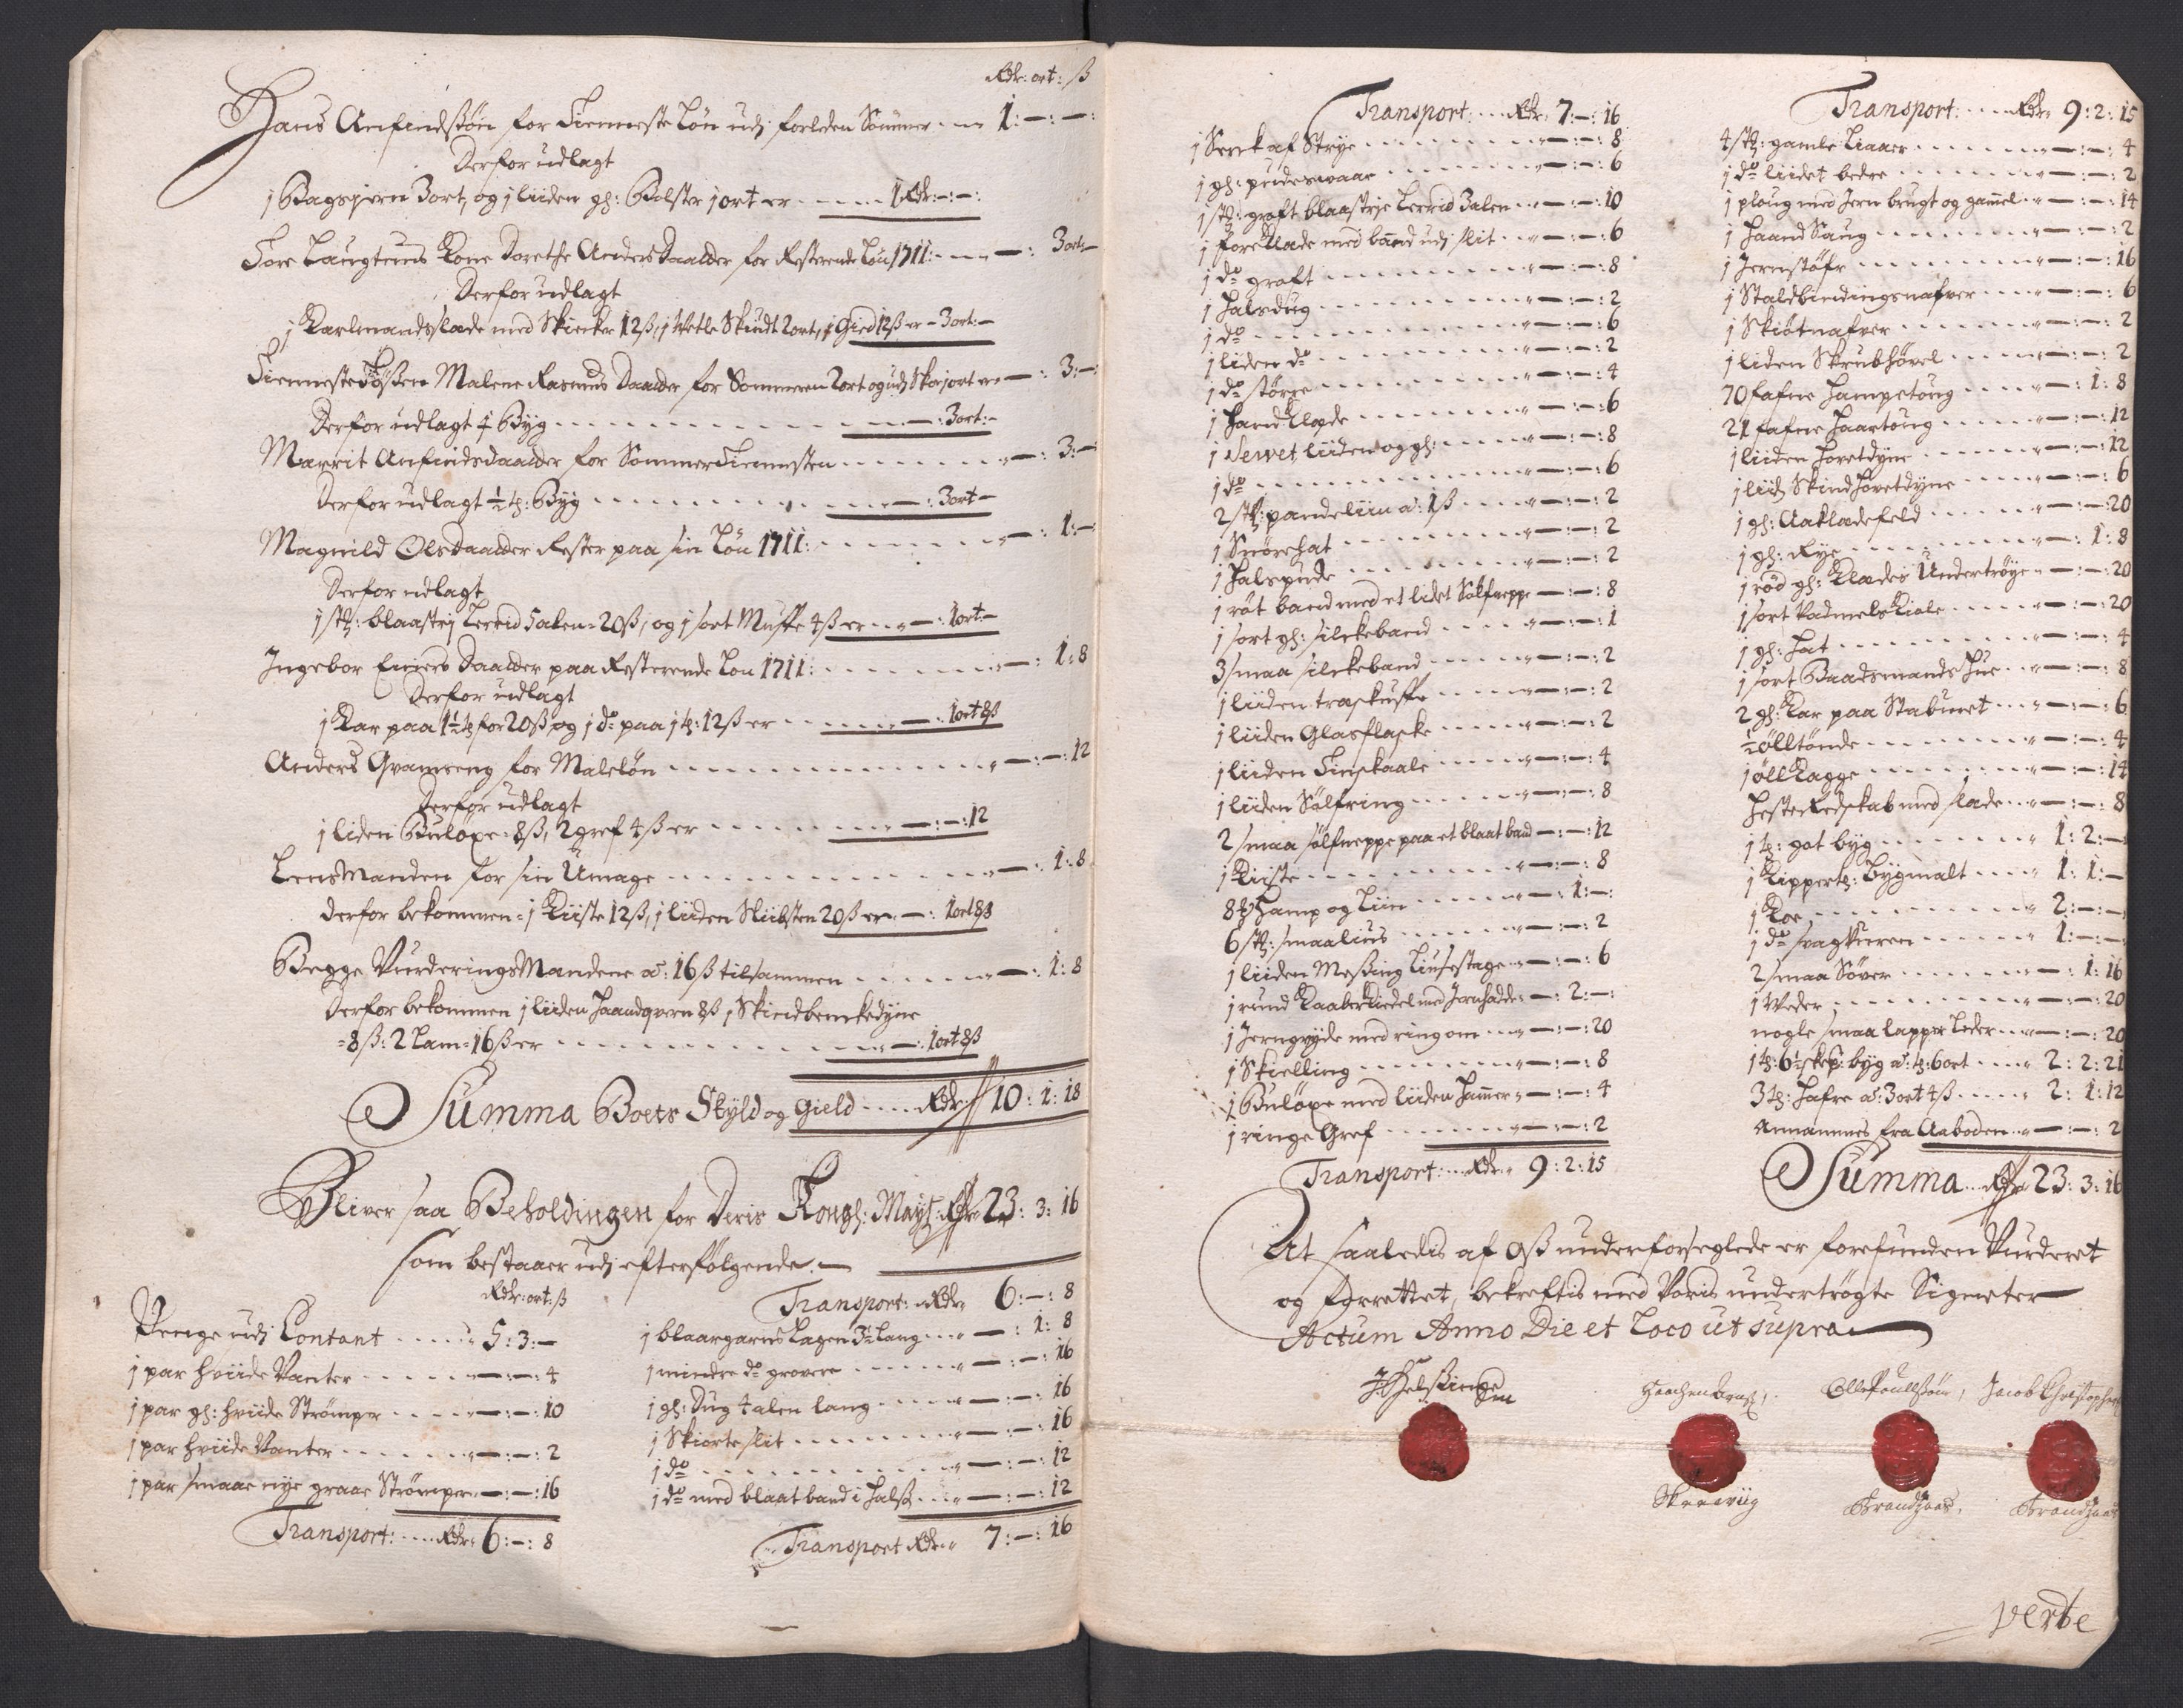 Rdr: ort: ß
Hans Anfindssøn for Tienneste Løn udj forleden Sommer 1:—:—:
Derfor udlagt
j Bagstjern 3ort, og j liiden gl: Bolster j ort er 1 Rdr:—:—:
Tore Laugtuns Kone Dorethe Anders Daatter for Resterende Løn 1711: —: 3ort:—
Derfor udlagt
j Karlmandsslæde med Skierke 12ß, j Wetle Skindt 2ort, j Gied 12ß er - 3ort:—
Tienneste Tøssen Malene Rasmus Daatter for Sommeren 2ort og udj Skoe j ort er —: 3:—
Derfor udlagt Byg —: 3ort:—
Marrit Anfindsdaatter for Sommer Tiennesten —: 3:—
Derfor udlagt ½ tₑ: Byg —: 3ort—
Magnild Olsdaatter Rester paa sin Løn 1711: —: 1:—
Derfor udlagt
j stₑ: blaastrj Lerrid 5 alen = 20ß, og j sort Muffe 4ß er —: 1ort—
Ingebor Einers Daatter paa Resterende Løn 1711: —: 1:8
Derfor udlagt
j Kar paa 1½ tₑ for 20ß og j do paa j tₑ: 12ß er —: 1ort8ß
Anders Gvamseng for Maleløn —:—: 12
Derfor udlagt
j liden Buløxe = 8ß, 2 gref 4ß er —:—: 12
LensManden for sin Umage —: 1:8
derfor bekommen = j Kiiste 12ß, j liiden Sliibsten 20ß er —: 1ort8ß
Begge VurderingsMændene a: 16ß tilsammen —: 1:8
Derfor bekommen j liiden Haandqvern 8ß j Skindbenkedyne
= 8ß: 2 Lam = 16ß er —: 1ort8ß
Summa Boets Skyld og Gield Rdr 10: 1: 18
Bliver saa Beholdingen for Deris Kongl: Mayt: Rdr 23: 3: 16
som bestaaer udj efterfølgende. —
Rdr: ort: ß
Penge udj Contant 5: 3:—
j par hviide Vanter —:—: 4
j par gl: hviide Strømper —:—: 10
j par hviide Vanter —:—: 2
j par smaae nye graae Strømper —:—: 16
Transport: Rdr 6:—: 8
Transport: Rdr 6:—: 8
j blaargarns Lagen 3½ Lang —: 1: 8
j mindre do grovere —:—: 16
j gl: Dug 4 alen lang —:—: 16
j Skiorte slit —:—: 16
j do —:—: 12
j do med blaat band i Halss —:—: 12
Transport Rdr 7:—: 16
Transport: Rdr 7:—: 16
j Serk af Strye —:—: 8
j gl: pudeswaar —:—: 6
j stₑ: groft blaastrje Lerrid 3 alen —:—: 10
j foreklæde med band udj slit —:—: 6
j do groft —:—: 8
j Halsdug —:—: 2
j do —:—: 6
j liden do —:—: 2
j do større —:—: 4
j Handklæde —:—: 6
j Servet liiden og gl: —:—: 8
j do —:—: 6
2 stₑ: pandeliin a: 1ß —:—: 2
j Snørehat —:—: 2
j Halspude —:—: 2
j røt band med et lidet Sølfneppe —:—: 8
j sort gl: silckeband —:—: 1
3 smaa silckeband —:—: 2
j liiden traskuffe —:—: 2
j liiden Glasflaske —:—: 2
j liiden Tinskaale —:—: 4
j liiden Sølfring —:—: 8
2 smaa sølfneppe paa et blaat band —:—: 12
j Kiiste —:—: 8
8 Hamp og Liin —: 1:—:
6 stₑ: smaaliins —:—: 2
j liiden Messing Liusestage —:—: 6
j rund Kaaber Kiedel med Jernhadde —: 2:—:
j Jerngryde med ring om —:—: 20
j Skielling —:—: 8
j Buløxe med liiden Hammer —:—: 4
j ringe Gref —:—: 2
Transport: Rdr 9: 2: 15
Transport: Rdr 9: 2: 15
4 stₑ: gamle Liaaer —:—: 4
j do liidet bedre —:—: 2
j ploug med Jern brugt og gamel —:—: 14
j Haand Saug —:—: 2
j Jernstøfr —:—: 16
j Staldbindingsnafver —:—: 6
j Skiøtnafver —:—: 2
j liden Skrubhøvel —:—: 2
70 fafne Hampetoug —: 1: 8
21 fafne Haartoug —:—: 12
j liiden Hovetdyne —:—: 12
j liid Skind Hovetdyne —:—: 6
j gl: Aaklædefeld —:—: 20
j gl: Rye —: 1: 8
j rød gl: Klædes Undertrøye —:—: 20
j sort Vadmels Kiole —:—: 20
j gl: Hat —:—: 4
j sort Baadsmands Hue —:—: 8
2 gl: Kar paa Staburet —:—: 6
½ ølltønde —:—: 4
j øll Kagge —:—: 14
Heste Redskab med slæde —:—: 8
j tₑ: got byg 1: 2:—
j Kippertₑ: Bygmalt 1: 1:—
j Koe 2:—:—
j do svag 1:—:—
2 smaa Søver —: 1: 16
j Weder —:—: 20
nogle smaa lapper Leder —:—: 20
1 tₑ: 6½ skep: byg a: tₑ: 6ort 2: 2: 21
3 tₑ: Hafre a: 3ort 4ß 2: 1: 12
Annammes fra Aaboden —:—: 2
Summa Rdr 23: 3: 16
At saaledis af Oss underforseglede er forefunden Vurderet
og forrettet, bekreftis med Voris undertrøgte Signeter
Actum Anno Die et Loco ut supra
Olle Poullssøn, Jacob Christophers
Skaawiig Brandsaas, Brandsaas
verte